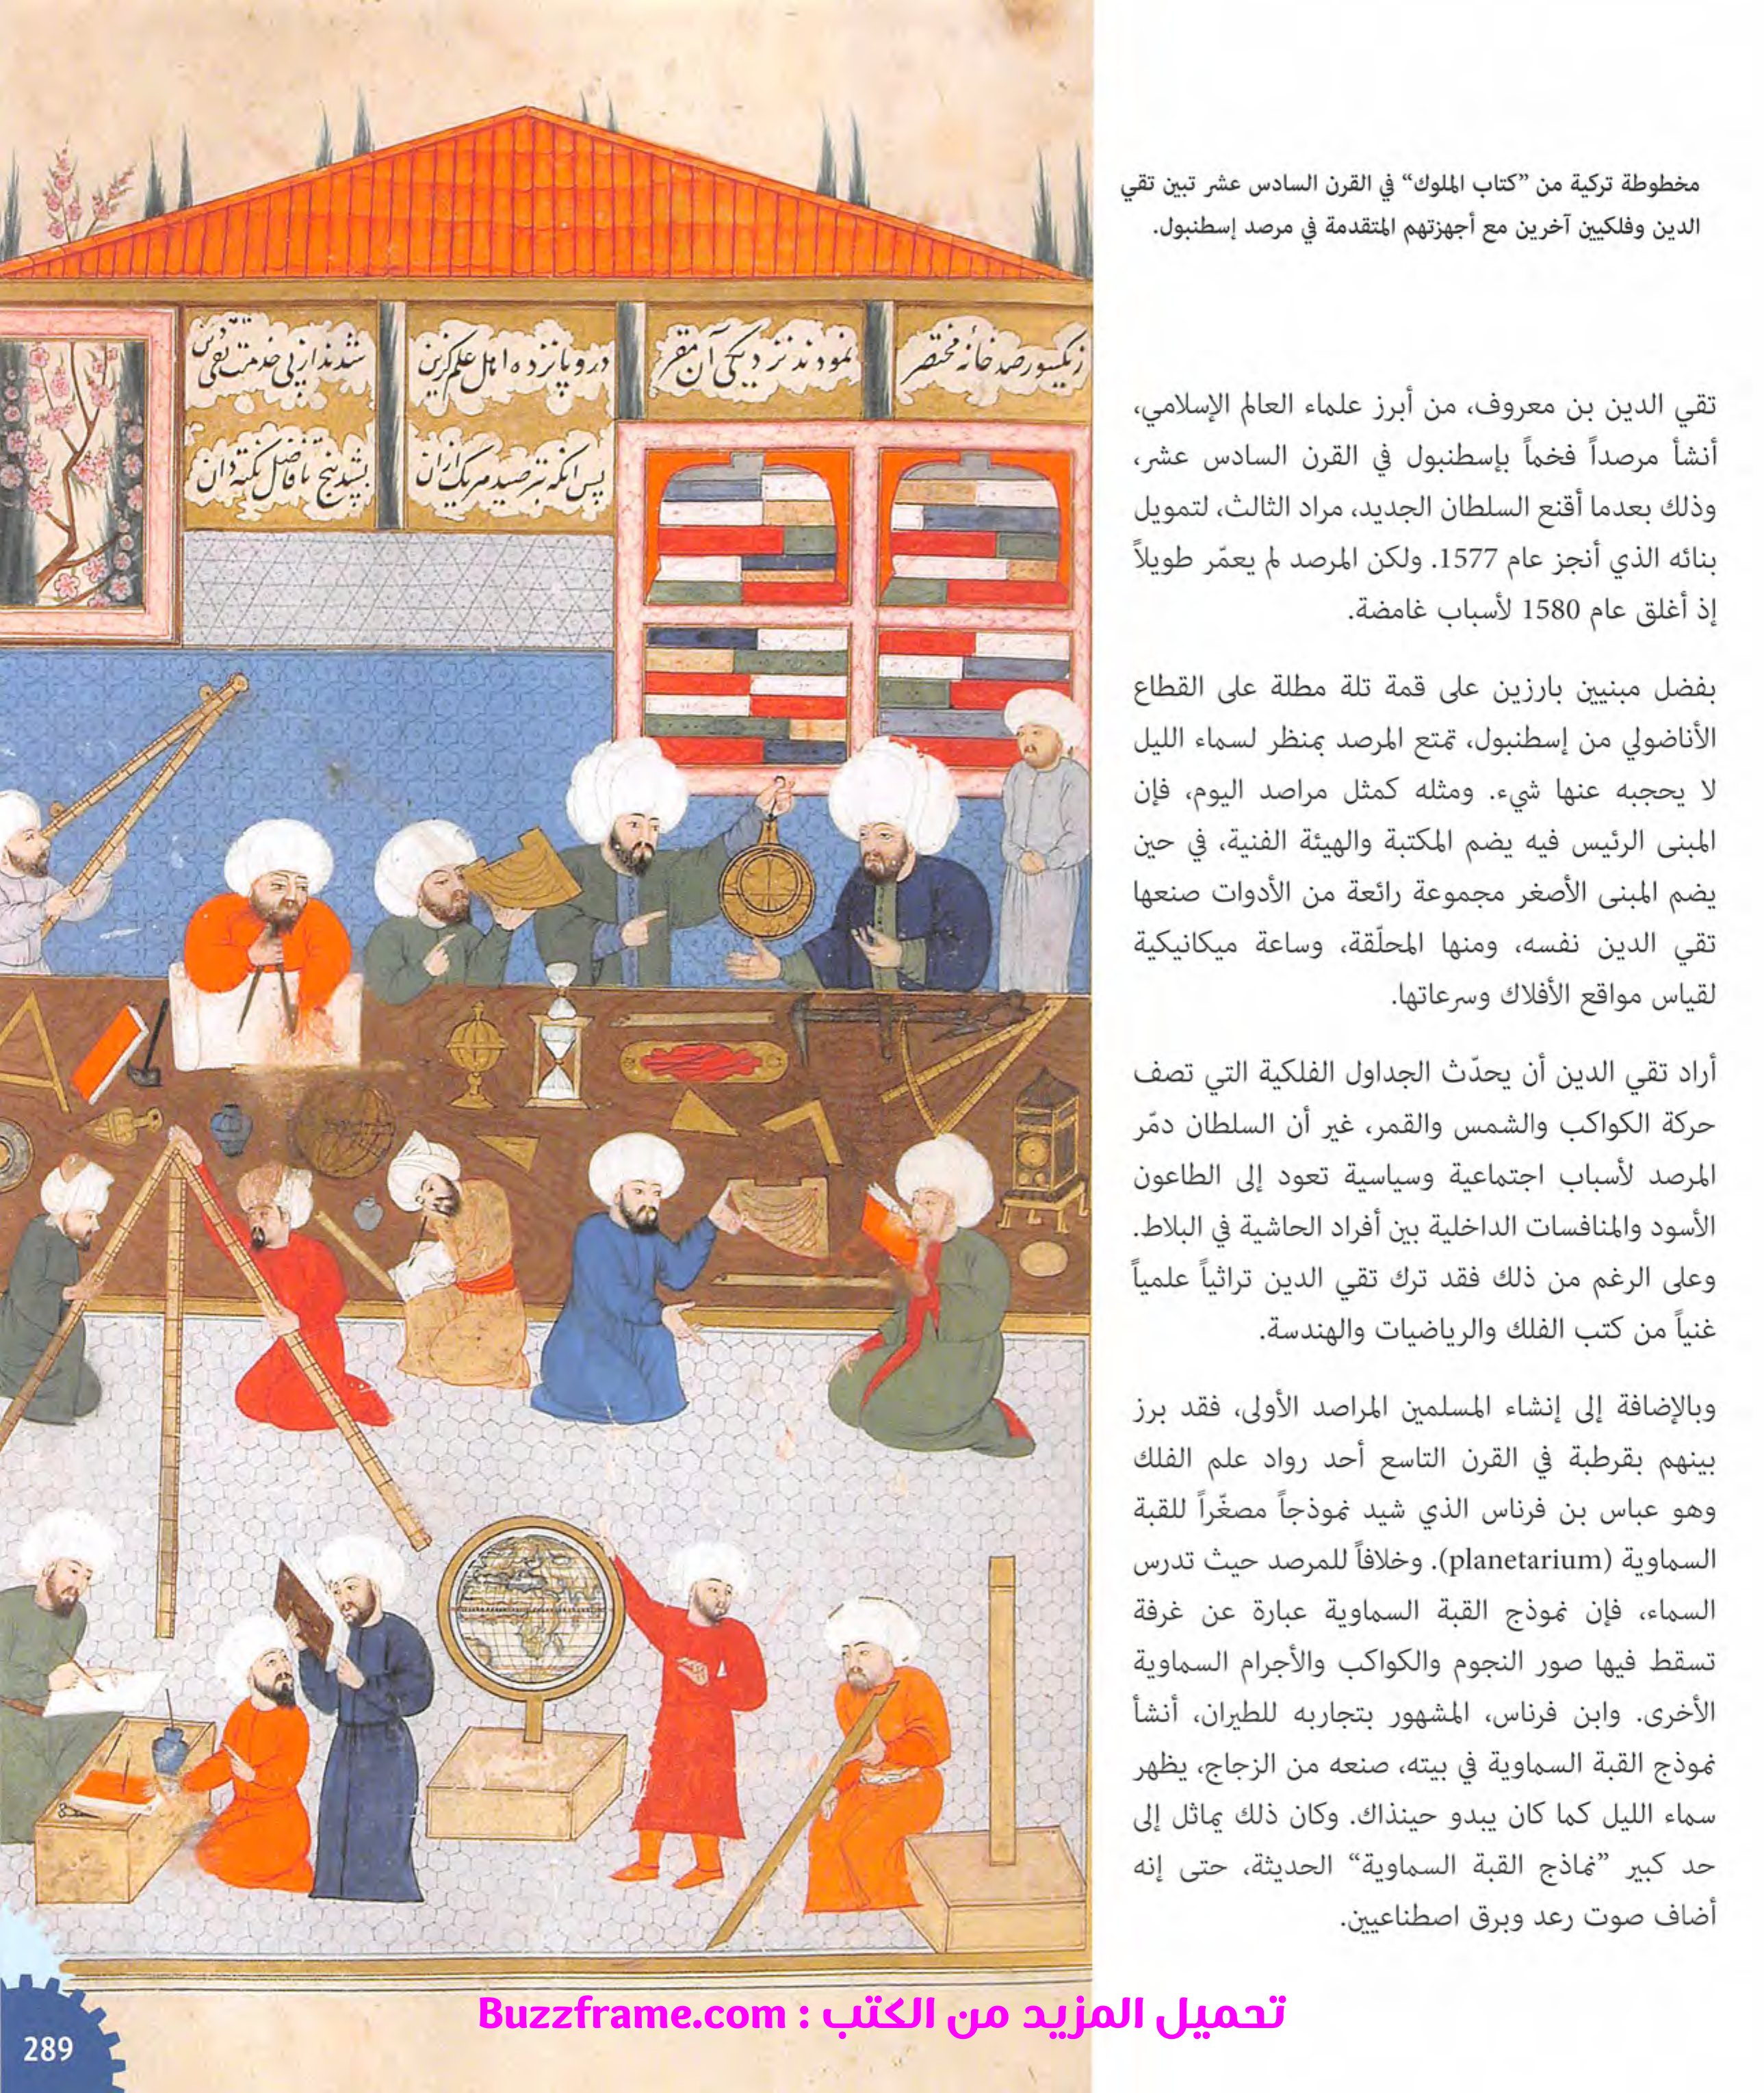 مخطوطة تركية من ”كتاب الملوك“ في القرن السادس عشر تبين تقي
الدين وفلكيين آخرين مع أجهزتهم المتقدمة في مرصد إسطنبول.
تقي الدين بن معروف، من أبرز علماء العالم الإسلامي،
أنشأ مرصداً فخماً بإسطنبول في القرن السادس عشر،
وذلك بعدما أقنع السلطان الجديد، مراد الثالث، لتمويل
بنائه الذي أنجز عام 1577. ولكن المرصد لم يعمّر طويلاً
إذ أغلق عام 1580 لأسباب غامضة.
بفضل مبنيين بارزين على قمة تلة مطلة على القطاع
الأناضولي من إسطنبول، تمتع المرصد بمنظر لسماء الليل
لا يحجبه عنها شيء. ومثله كمثل مراصد اليوم، فإن
المبنى الرئيس فيه يضم المكتبة والهيئة الفنية، في حين
يضم المبنى الأصغر مجموعة رائعة من الأدوات صنعها
تقي الدين نفسه، ومنها المحلّقة، وساعة ميكانيكية
لقياس مواقع الأفلاك وسرعاتها.
أراد تقي الدين أن يحدّث الجداول الفلكية التي تصف
حركة الكواكب والشمس والقمر، غير أن السلطان دمّر
المرصد لأسباب اجتماعية وسياسية تعود إلى الطاعون
الأسود والمنافسات الداخلية بين أفراد الحاشية في البلاط.
وعلى الرغم من ذلك فقد ترك تقي الدين تراثياً علمياً
غنياً من كتب الفلك والرياضيات والهندسة.
وبالإضافة إلى إنشاء المسلمين المراصد الأولى، فقد برز
بينهم بقرطبة في القرن التاسع أحد رواد علم الفلك
وهو عباس بن فرناس الذي شيد نموذجاً مصغّراً للقبة
السماوية (planetarium). وخلافاً للمرصد حيث تدرس
السماء، فإن نموذج القبة السماوية عبارة عن غرفة
تسقط فيها صور النجوم والكواكب والأجرام السماوية
الأخرى. وابن فرناس، المشهور بتجاربه للطيران، أنشأ
نموذج القبة السماوية في بيته، صنعه من الزجاج، يظهر
سماء الليل كما كان يبدو حينذاك. وكان ذلك يماثل إلى
حد كبير ”نماذج القبة السماوية“ الحديثة، حتى إنه
أضاف صوت رعد وبرق اصطناعيين.
رصد خانه مختصر
نمودند نزديكى آن مقر
درو پانزده اهل علم گزين
شدند از پى خدمت تقى
تحميل المزيد من الكتب : Buzzframe.com
289